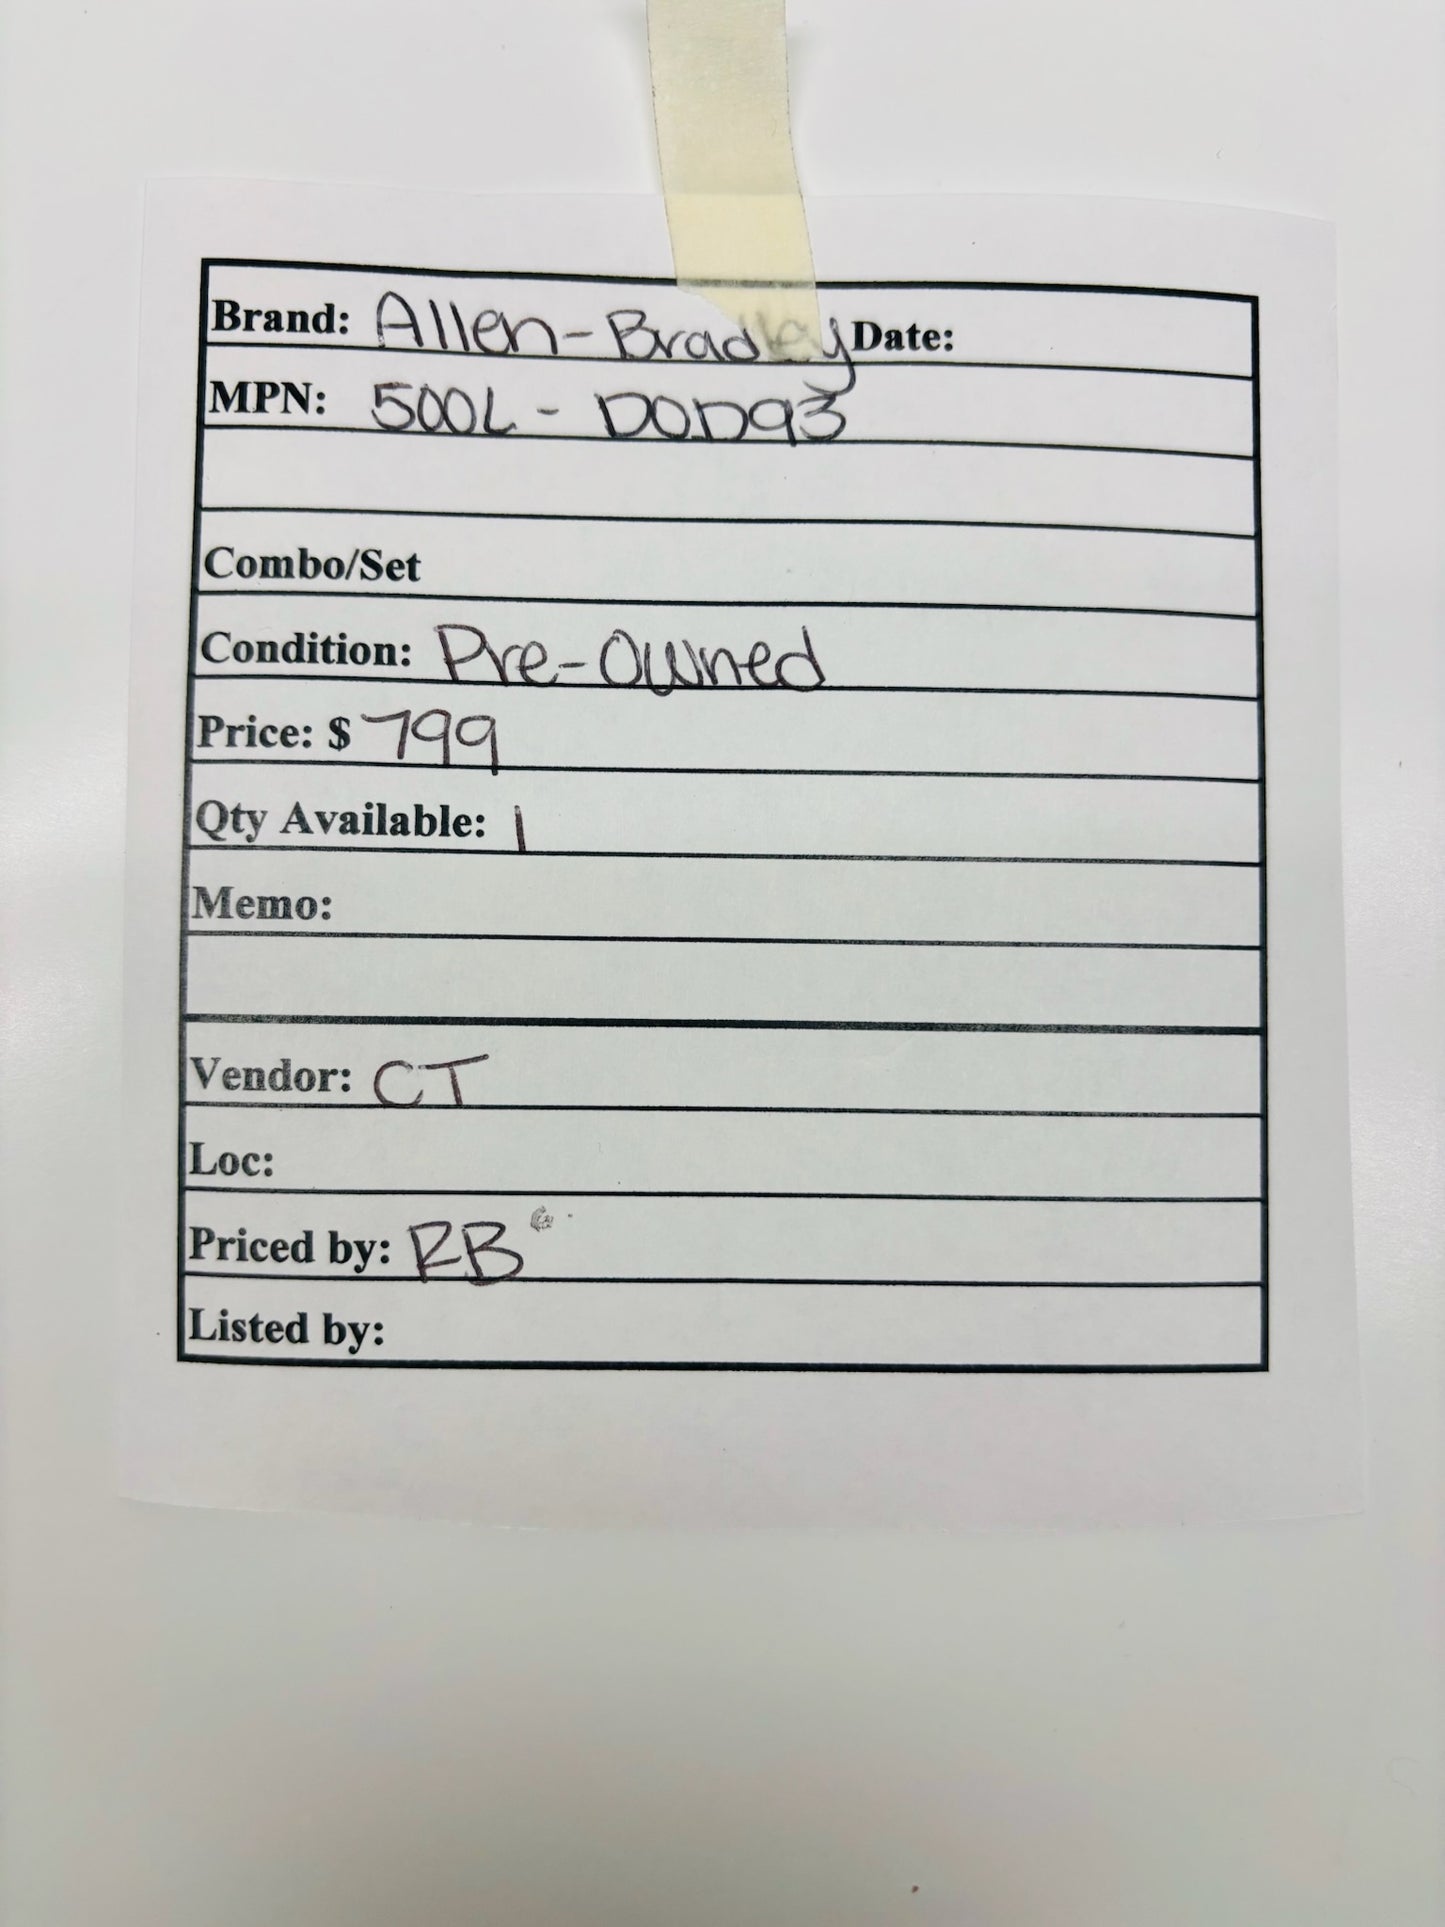 Brand: Allen-Bradley Date:
MPN: 500L - DOD93
Combo/Set
Condition: Pre-Owned
Price: $ 799
Qty Available: 1
Memo:
Vendor: CT
Loc:
Priced by: RB
Listed by: